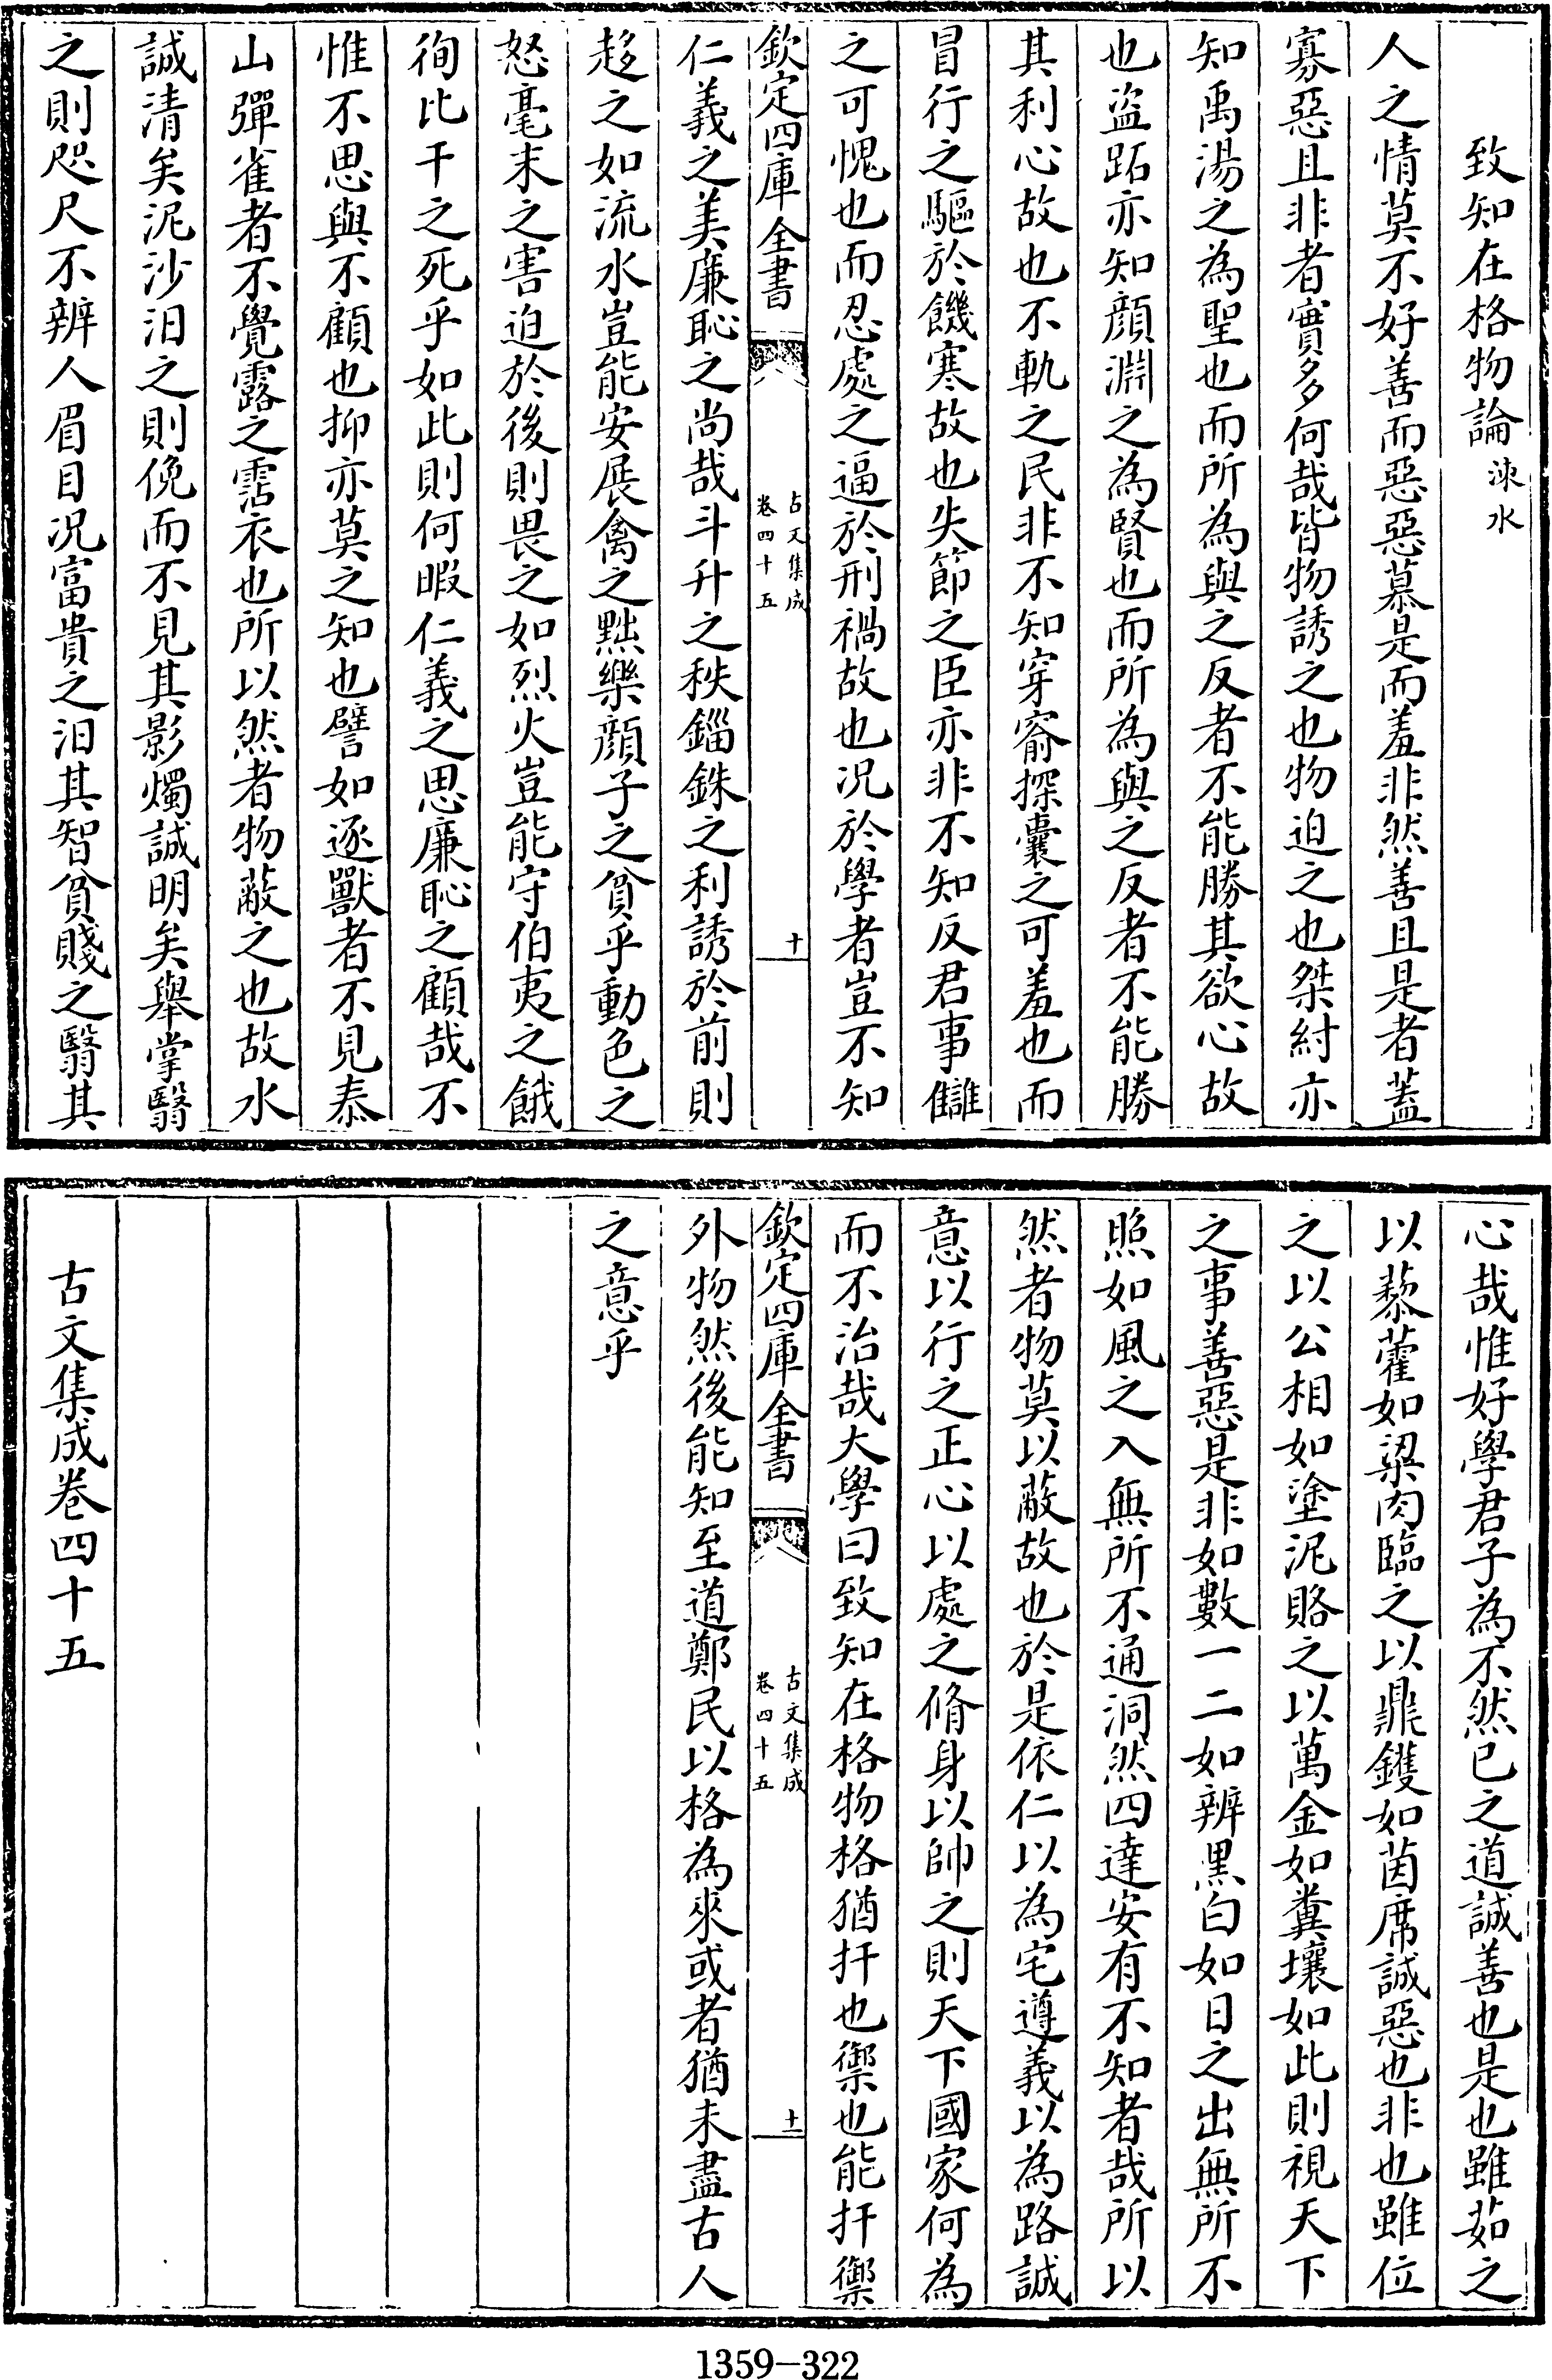 致知在格物論涑水
人之情莫不好善而惡惡慕是而羞非然善且是者蓋
寡惡且非者實多何哉皆物誘之也物迫之也桀紂亦
知禹湯之為聖也而所為與之反者不能勝其欲心故
也盜跖亦知顔淵之為賢也而所為與之反者不能勝
其利心故也不軌之民非不知穿窬探囊之可羞也而
冒行之驅於饑寒故也失節之臣亦非不知反君事讎
之可愧也而忍處之逼於刑禍故也况於學者豈不知
欽定四庫全書
古文集成
卷四十五
十
仁義之美廉恥之尚哉斗升之秩錙銖之利誘於前則
趍之如流水豈能安展禽之黜樂顔子之貧乎動色之
怒毫末之害迫於後則畏之如烈火豈能守伯夷之餓
徇比干之死乎如此則何暇仁義之思廉恥之顧哉不
惟不思與不顧也抑亦莫之知也譬如逐獸者不見泰
山彈雀者不覺露之霑衣也所以然者物蔽之也故水
誠清矣泥沙汨之則俛而不見其影燭誠明矣舉掌翳
之則咫尺不辨人眉目况富貴之汨其智貧賤之翳其
心哉惟好學君子為不然已之道誠善也是也雖茹之
以藜藿如粱肉臨之以鼎鑊如茵席誠惡也非也雖位
之以公相如塗泥賂之以萬金如糞壤如此則視天下
之事善惡是非如數一二如辨黑白如日之出無所不
照如風之入無所不通洞然四達安有不知者哉所以
然者物莫以蔽故也於是依仁以為宅遵義以為路誠
意以行之正心以處之脩身以帥之則天下國家何為
而不治哉大學曰致知在格物格猶扞也禦也能扞禦
欽定四庫全書
古文集成
卷四十五
十一
外物然後能知至道鄭民以格為來或者猶未盡古人
之意乎
古文集成卷四十五
1359-322